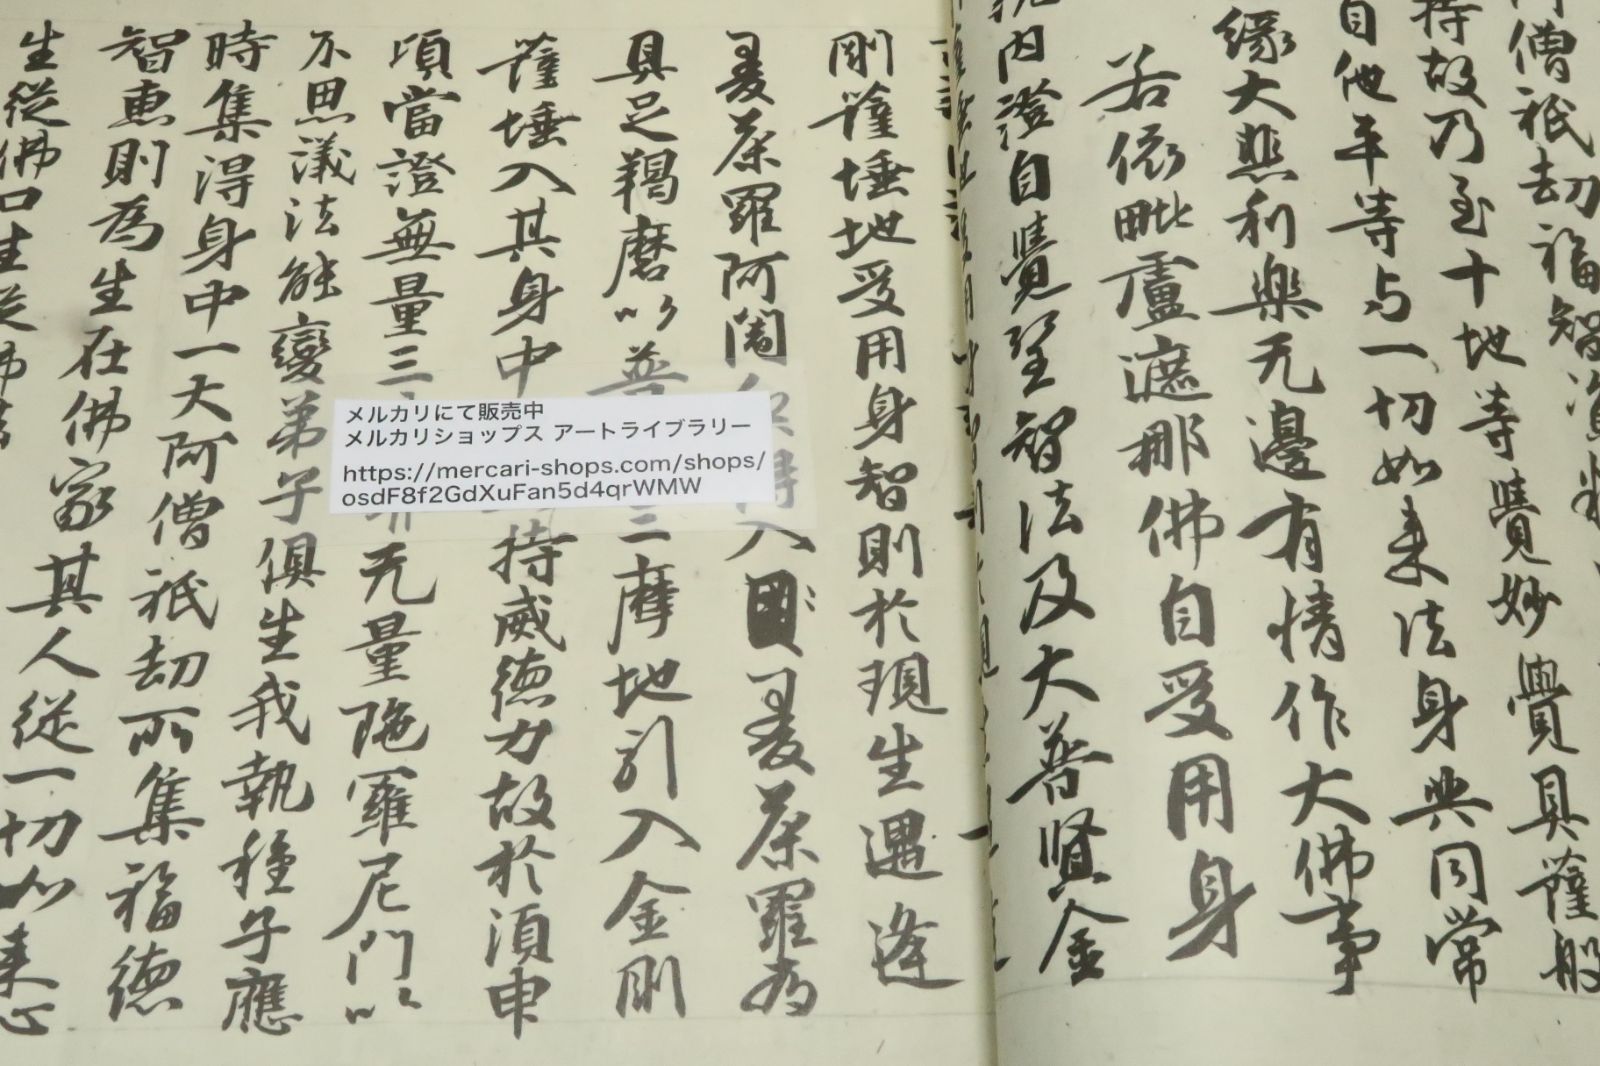 僧祇劫福智資糧
持故乃至十地等覺妙覺具薩般
自他平等与一切如来法身共同常
緣大悲利樂无邊有情作大佛事
若依毗盧遮那佛自受用身
内證自覺聖智法及大普賢金
剛薩埵地受用身智則於現生遇逢
曼荼羅阿闍 得入曼荼羅為
具足羯磨以普 三摩地引入金剛
薩埵入其身中 持威德力故於須申
頃當證無量三 无量陁羅尼門以
不思議法能變弟子俱生我執種子應
時集得身中一大阿僧祇劫所集福德
智恵則為生在佛家其人從一切如来心
生從佛口生從佛
メルカリにて販売中
メルカリショップス アートライブラリー
https://mercari-shops.com/shops/
osdF8f2GdXuFan5d4qrWMW